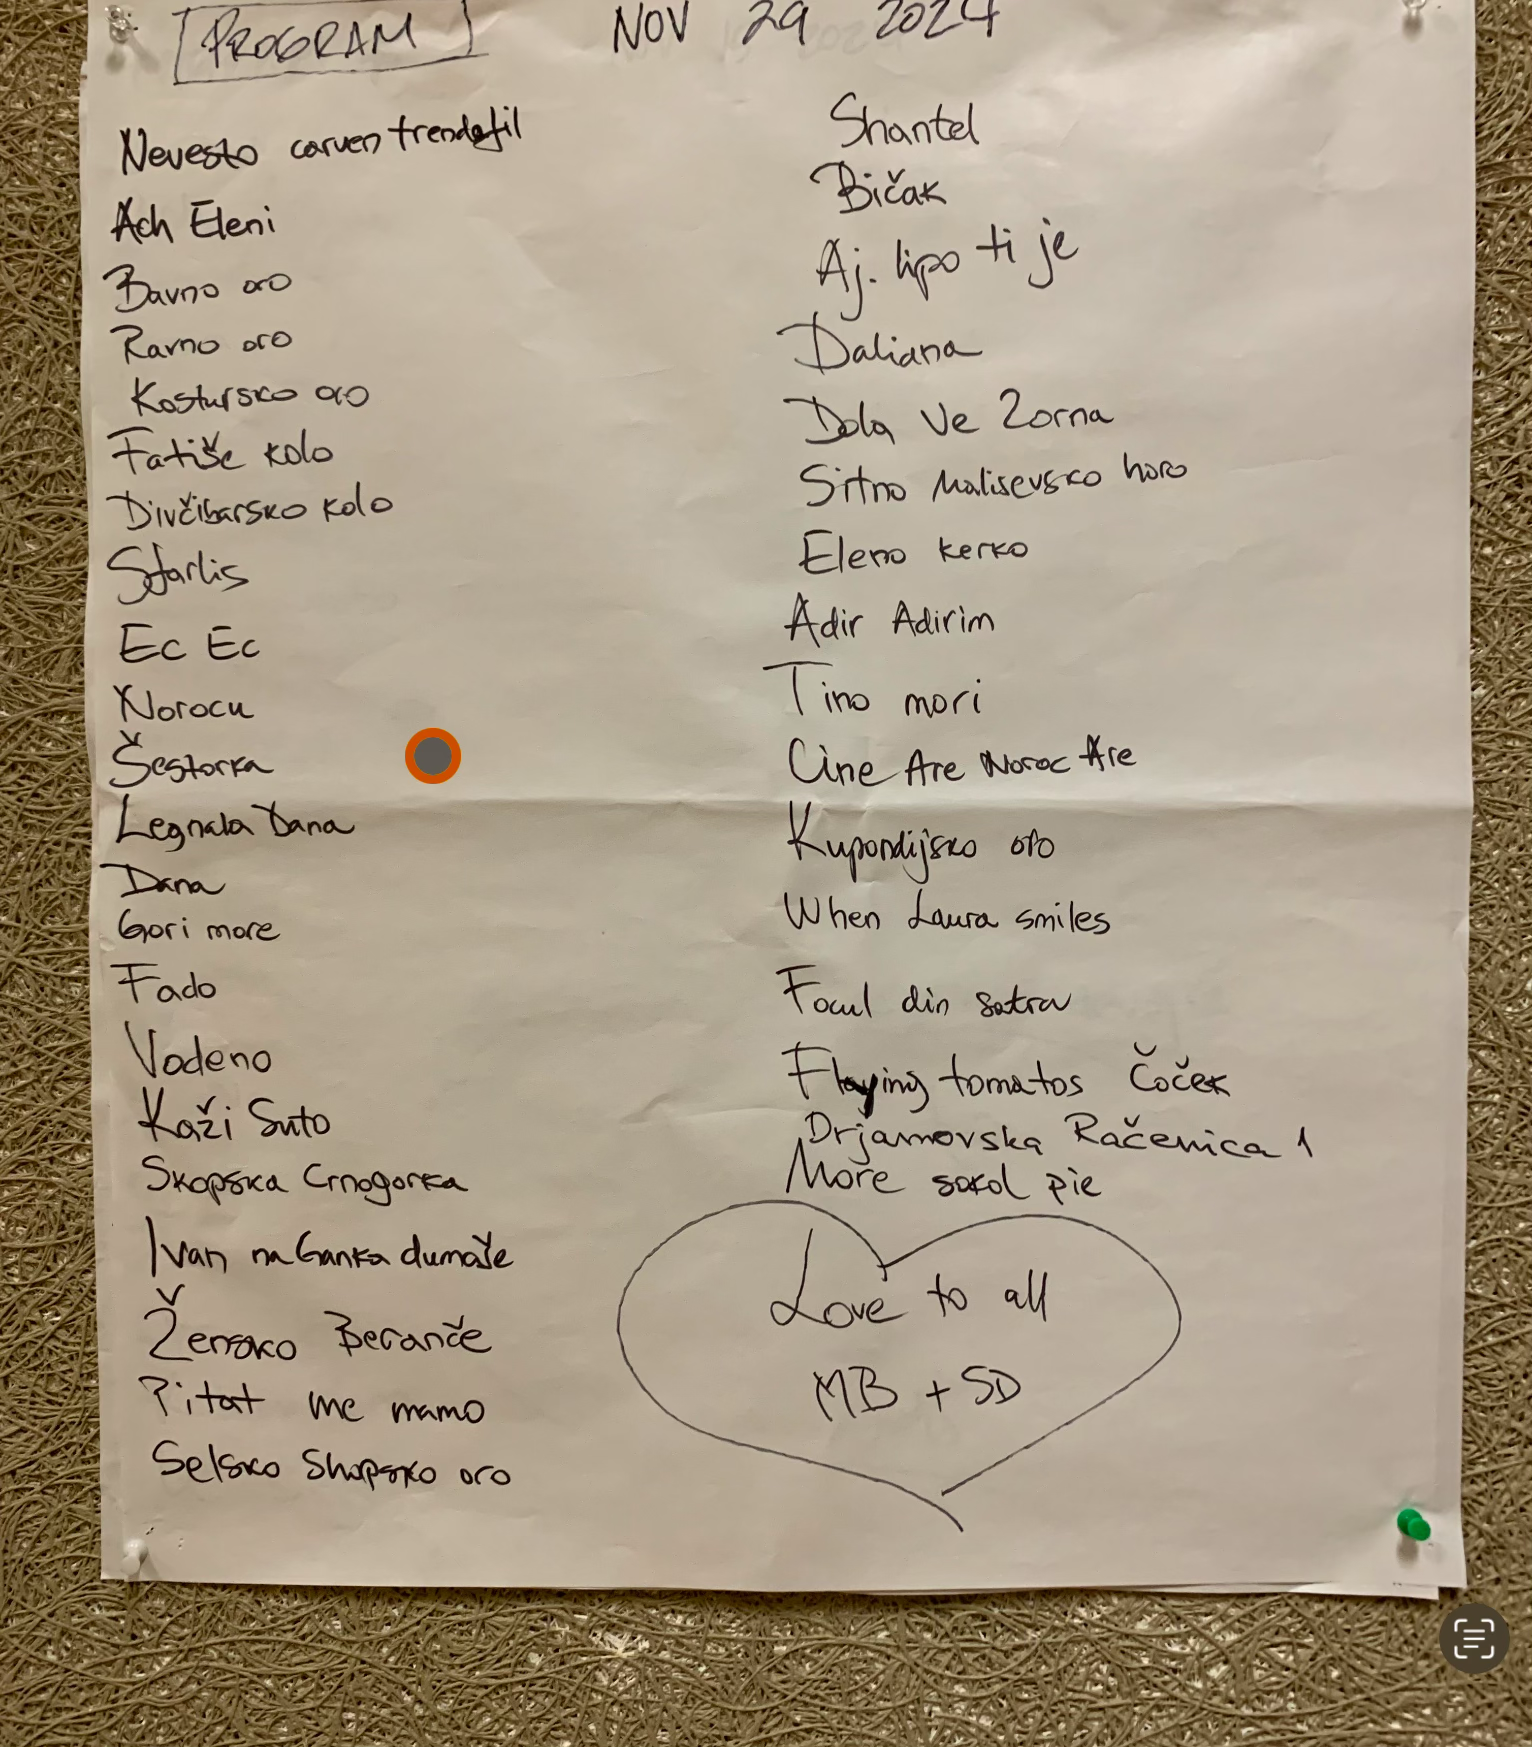 PROGRAM NOV 29 2024
Nevesto carven trendafil
Ach Eleni
Bavno oro
Ravno oro
Kostursko oro
Fatiše kolo
Divčibarsko kolo
Starlis
Ec Ec
Norocu
Šestorka
Legnala Dana
Dana
Gori more
Fado
Vodeno
Kaži Suto
Skopska Crnogorka
Ivan na Ganka dumaše
Žensko Beranče
Pitat me mamo
Selsko Shopsko oro
Shantel
Bičak
Aj. lipo ti je
Daliana
Dola Ve Zorna
Sitno Malisevsko horo
Eleno kerko
Adir Adirim
Tino mori
Cine Are Noroc Are
Kupondijsko oro
When Laura smiles
Focul din satra
Flaying tomatos Čoček
Drjanovska Račenica 1
More sokol pie
Love to all
MB + SD